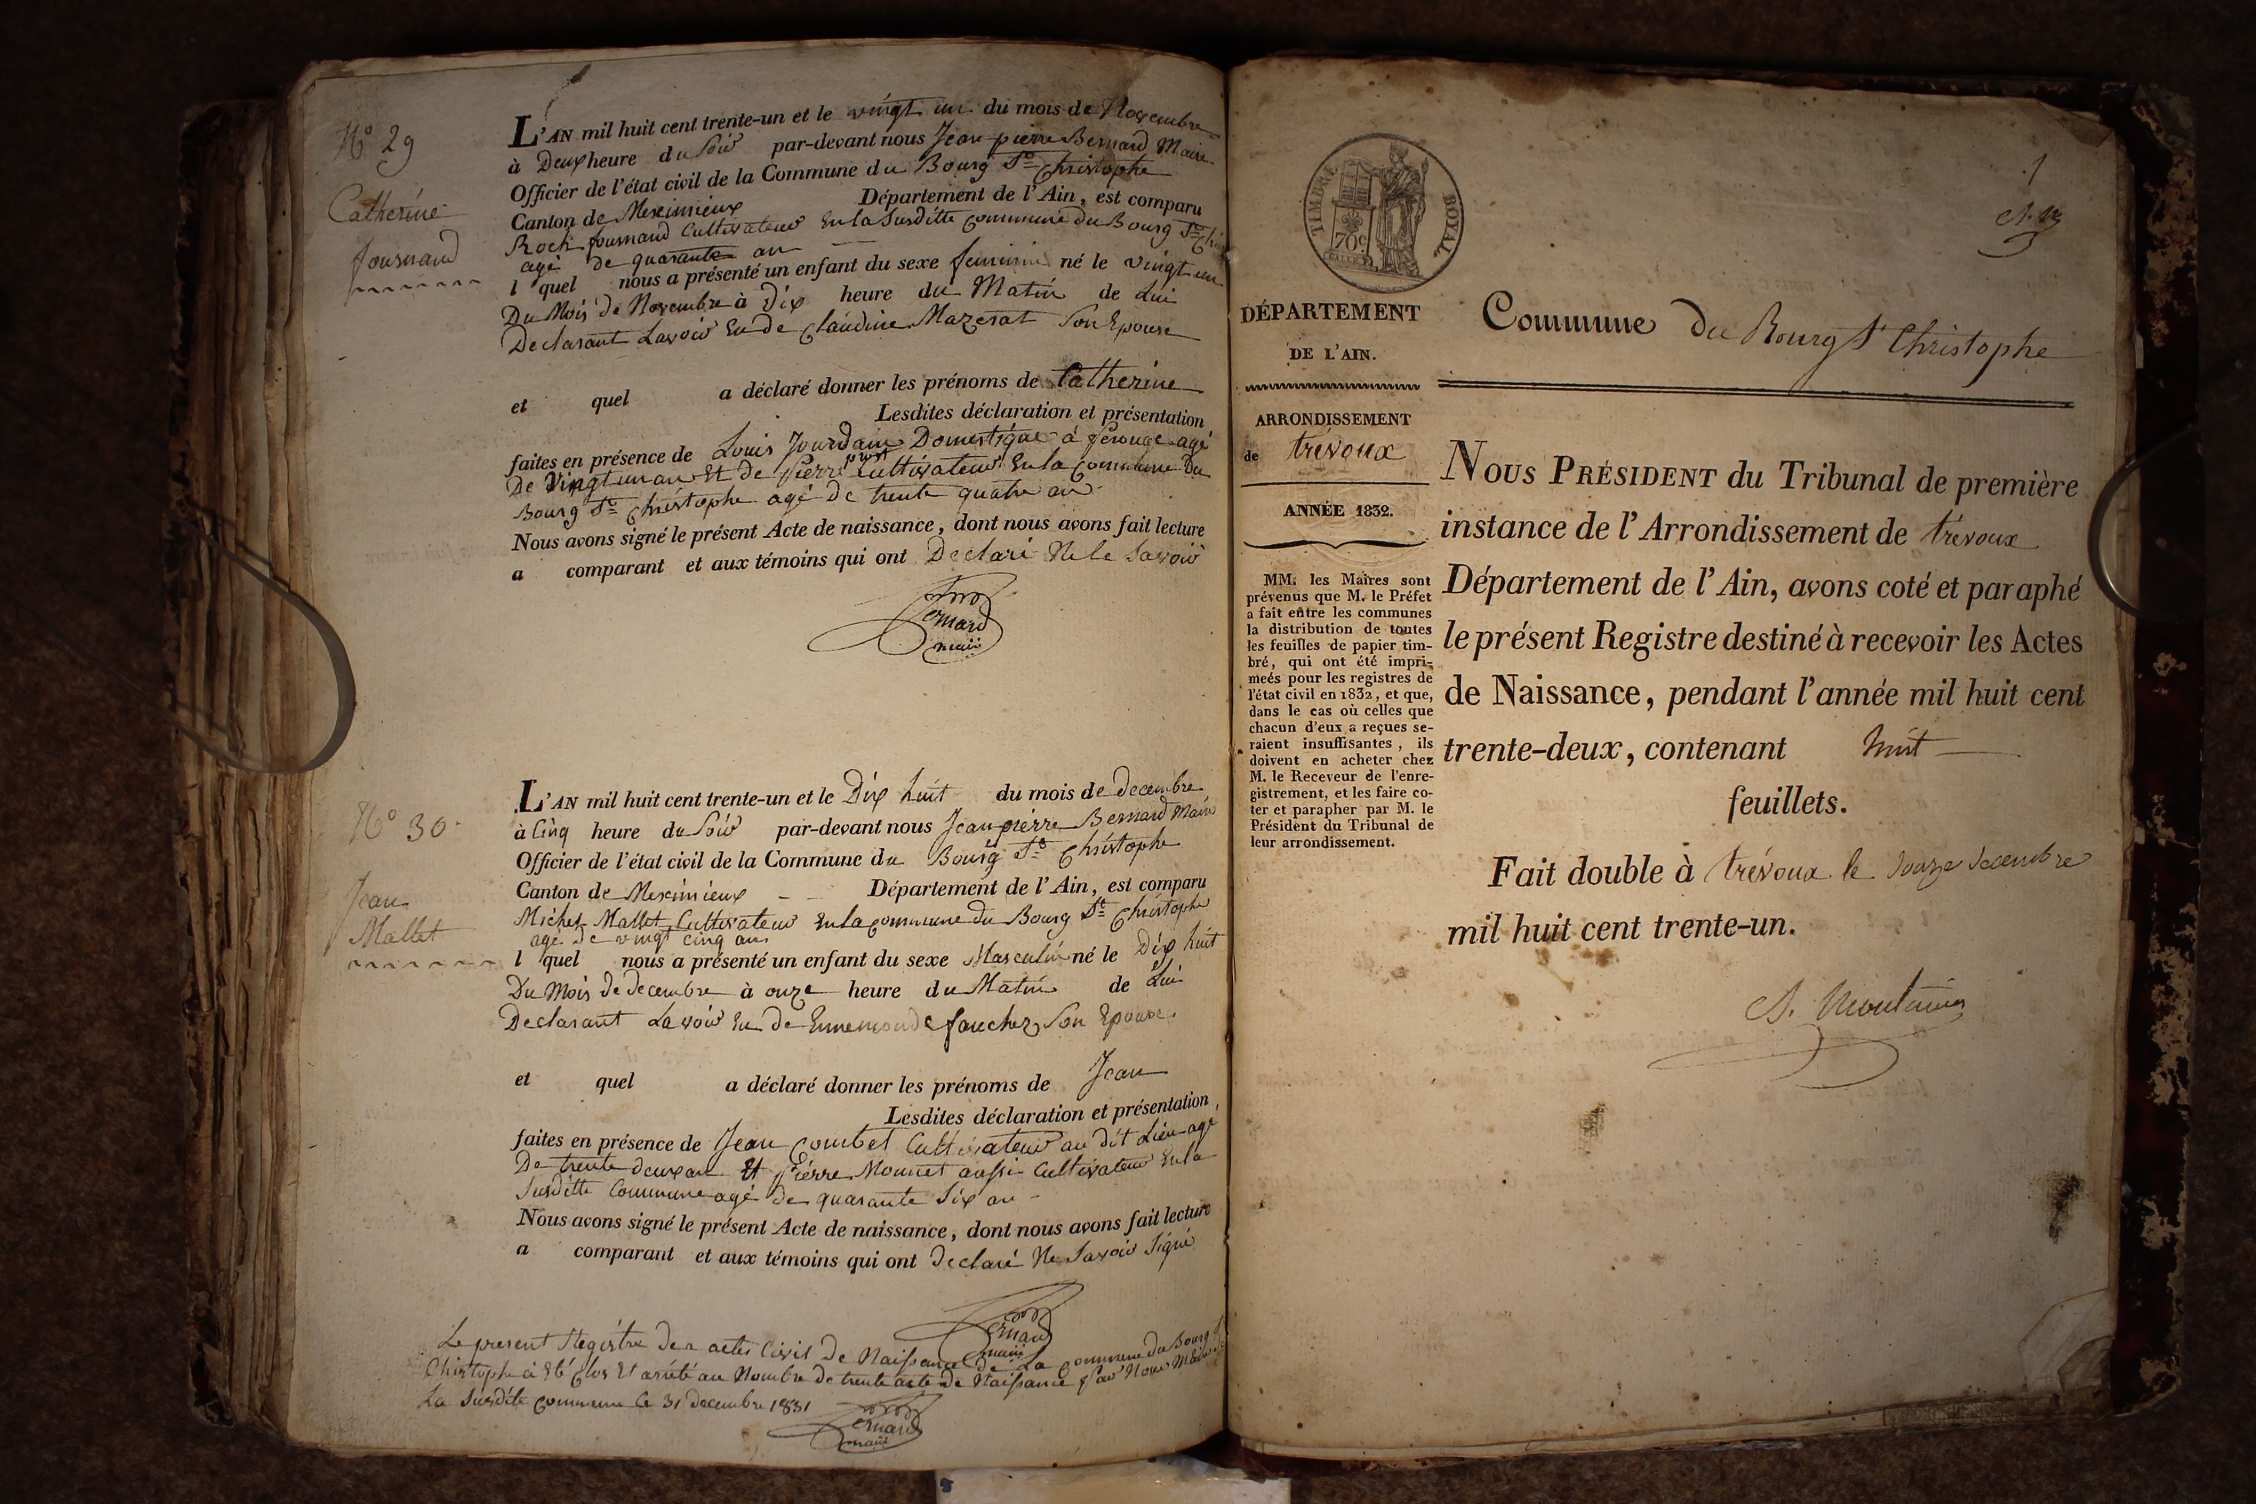 N° 29
Catherine
fournand
L'AN mil huit cent trente-un et le vingt un du mois de Novembre
à Deux heure du Soir par-devant nous Jean pierre Bernard Maire
Officier de l'état civil de la Commune du Bourg St Christophe
Canton de Meximieux Département de l'Ain, est comparu
Roch fournand Cultivateur En la Susditte Commune du Bourg St
agé de quarante an
l quel nous a présenté un enfant du sexe feminin né le vingt un
Du Mois de Novembre à Dix heure du Matin de Lui
Declarant Lavoir Eu de Claudine Mazerat Son Epouse
et quel a déclaré donner les prénoms de Catherine
Lesdites déclaration et présentation
faites en présence de Louis Jourdain Domestique à Pérouge agé
De Vingt un an Et de Pierre Cultivateur En la Commune Du
Bourg St Christophe agé De trente quatre an
Nous avons signé le présent Acte de naissance, dont nous avons fait lecture
a comparant et aux témoins qui ont Declaré Ne le Savoir
Bernard
maire
N° 30
Jean
Mallet
L'AN mil huit cent trente-un et le Dix huit du mois de decembre
à Cinq heure du Soir par-devant nous Jean pierre Bernard Maire
Officier de l'état civil de la Commune du Bourg St Christophe
Canton de Meximieux Département de l'Ain, est comparu
Michel Mallet Cultivateur En la commune du Bourg St Christophe
agé De vingt cinq ans
l quel nous a présenté un enfant du sexe Masculin né le Dix huit
Du Mois de decembre à onze heure du Matin de Lui
Declarant Lavoir Eu De Ennemonde faucher Son Epouse
et quel a déclaré donner les prénoms de Jean
Lesdites déclaration et présentation,
faites en présence de Jean Combet Cultivateur au dit Lieu agé
De trente deux an Et Pierre Monnet aussi Cultivateur En la
Susditte Commune agé De quarante Six an
Nous avons signé le présent Acte de naissance, dont nous avons fait lecture
a comparant et aux témoins qui ont declaré Ne Savoir Signé
Bernard
maire
Le present Registre des actes Civil De Naissance De La Commune du Bourg St
Christophe à Eté Clos Et arrété au Nombre De trente acte De Naissance Par Nous Maire
La Susdite Commune Ce 31 Decembre 1831
Bernard
maire
1
TIMBRE ROYAL
70c
DÉPARTEMENT
DE L'AIN.
ARRONDISSEMENT
de trévoux
ANNÉE 1832.
MM. les Maires sont
prévenus que M. le Préfet
a fait entre les communes
la distribution de toutes
les feuilles de papier tim-
bré, qui ont été impri-
meés pour les registres de
l'état civil en 1832, et que,
dans le cas où celles que
chacun d'eux a reçues se-
raient insuffisantes, ils
doivent en acheter chez
M. le Receveur de l'enre-
gistrement, et les faire co-
ter et parapher par M. le
Président du Tribunal de
leur arrondissement.
Commune du Bourg St Christophe
NOUS PRÉSIDENT du Tribunal de première
instance de l'Arrondissement de trévoux
Département de l'Ain, avons coté et paraphé
le présent Registre destiné à recevoir les Actes
de Naissance, pendant l'année mil huit cent
trente-deux, contenant huit
feuillets.
Fait double à trévoux le douze decembre
mil huit cent trente-un.